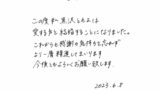 この度私、黒沢ともよは
愛する方と結婚することになりました。
これからも感謝の気持ちを忘れず
より一層精進してまいります
今後ともよろしくお願い致します。
2023.6.8